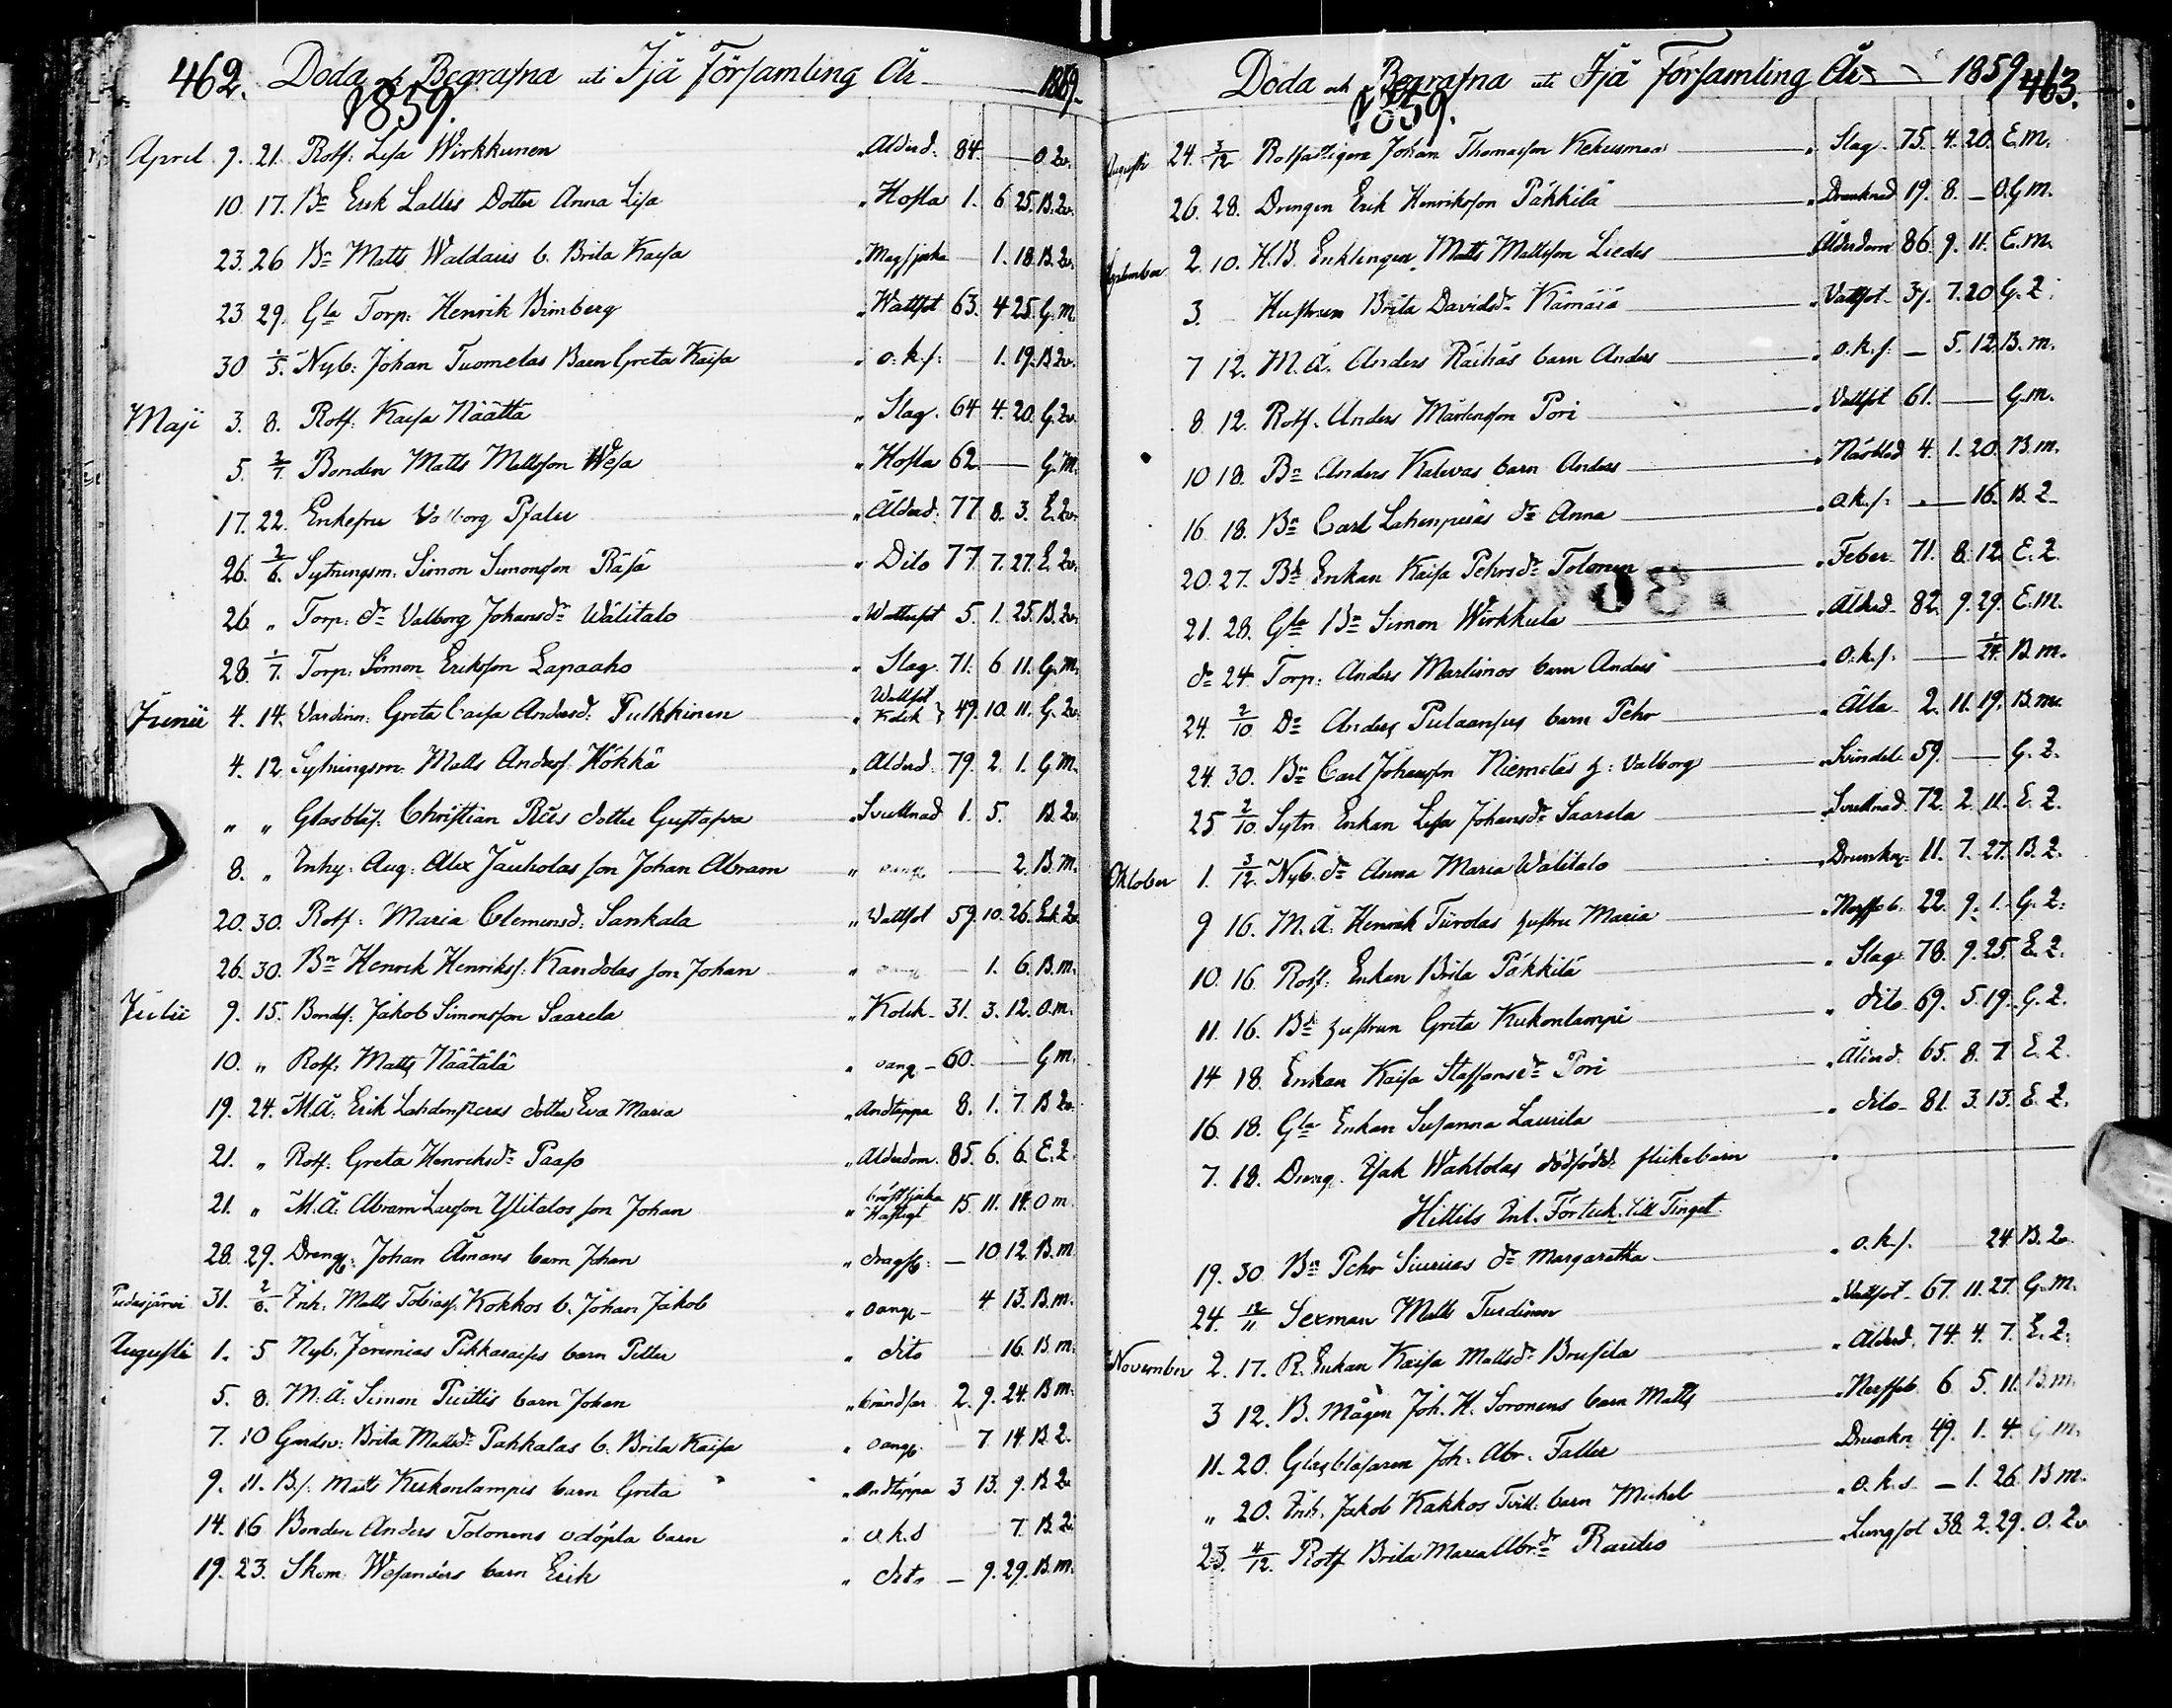 462. Döda och Begrafna uti Ijå Församling År 1859.
1859.
April 9. 21. Rotf: Lisa Wirkkunen " Ålderd. 84. — O. Qv.
10. 17. Bn Erik Lallis Dotter Anna Lisa " Hosta 1. 6 25. B. Qv.
23. 26 Bn Matts Waldaris b. Brita Kaisa " Magsjuka — 1. 18. B. Qv.
23 29. Gla Torp: Henrik Bimberg " Wattsot 63. 4 25. G. M.
30 1/5. Nyb: Johan Tuomelas Barn Greta Kaisa " o. k. s: — 1. 19. B. Qv.
Maji 3. 8. Rotf: Kaisa Näätta " Slag. 64 4. 20. G. Qv.
5. 2/7 Bonden Matts Mattsson Wesa " Hosta 62 — G. M.
17. 22. Enkefru Valborg Pfaler " Ålderd. 77 8. 3. E. Qv.
26. 2/6. Sytningsm. Simon Simonsson Räsä " Dito 77 7. 27. E. Qv.
26 " Torp: dr Valborg Johansdr Wälitalo " Wattusot 5. 1. 25. B. Qv.
28. 1/7. Torp: Simon Eriksson Lapaaho " Slag. 71. 6 11. G. m.
Junii 4. 14. Vardinn: Greta Caisa Andersd: Pulkkinen " Wattsot Kolik } 49. 10. 11. G. Qv.
4. 12 Sytningsm. Matts Anders: Hökkä " Ålderd. 79. 2. 1. G. M.
" " Glasblås: Christian Ries dotter Gustafva " Svullnad 1. 5. B. Qv.
8. " Inhy: Aug: Alex Jauholas son Johan Abram " oang — 2. B. M.
20. 30. Rotf: Maria Clemensd: Sankala " Vattsot 59. 10. 26. Enk. Qv.
26. 30. Bn Henrik Henrikss: Kandolas son Johan " oang — 1. 6. B. m.
Julii 9. 15. Bonds: Jakob Simonsson Saarela " Kolik 31. 3. 12. O. m.
10. " Rotf. Matts Näätälä " oang — 60. — G. m.
19. 24. M.Å. Erik Lahdenperas dotter Eva Maria " Andtäppa 8. 1. 7. B Qv.
21. " Rotf: Greta Henriksdr Paaso " Ålderdom. 85. 6. 6. E. Q.
21. " M.Å. Abram Larsson Ylitalos son Johan " bröstsjuka Häftigt 15. 11. 14. O m.
28. 29. Dreng: Johan Åmans barn Johan " dragsj: — 10 12. B. m.
Pudasjärvi 31. 2/8. Inh. Matts Tobiass: Kokkos b. Johan Jakob " oang — 4 13. B. m.
Augusti 1. 5 Nyb. Jeremias Pikkaraises barn Petter " dito — 16. B. m.
5. 8. M. Å: Simon Puittis barn Johan 2. 9. 24. B m.
7. 10 Gardsv: Brita Mattsdr Pahkalas b. Brita Kaisa " oang — 7 14. B Q.
9. 11. B/: Matts Kukonlampis barn Greta " Andtäppa 3 13. 9. B Qv
14. 16 Bonden Anders Tolonens odöpta barn " o. k. s 7. B Q.
19. 23. Skom Wasanders barn Erik " dito — 9. 29. B. m.
Döda och Begrafna uti Ijå Församling År 1859 463.
1859.
Augusti 24. 3/12 Rotfattigen Johan Thomasson " Slag 75. 4. 20. E. m.
26. 28. Drengen Erik Henriksson Päkkilä " Drunknad 19. 8. — O. G m.
September 2. 10. H.B. Enklingen Matts Mattsson Liedes " Ålderdom 86. 9. 11. E. m.
3. Hustrun Brita Davidsdr Kärnäiä " Vattsot 37. 7. 20 G. Q.
7 12. M. Å. Anders Räihäs barn Anders " o. k. s. — 5. 12. B. m.
8 12. Rotf. Anders Mårtensson Pori " Vattsot 61. — G. m.
10 18. Bn Anders Kalevas barn Anders " Näsblod 4. 1. 20. B. m.
16 18. Bn Carl Lahenperäs dr Anna " o. k. s: — 16. B. Q.
20. 27. Bd Enkan Kaisa Pehrsdr Tolonen " Feber 71. 8. 12 E. Q.
21. 28. Gla Bn Simon Wirkkula " Ålderd. 82. 9. 29. E. M.
do 24 Torp: Anders Martimos barn Anders " o. k. s. — 1/24. B. m.
24. 2/10 Do Anders barn Pehr " Älta 2. 11. 19. B. m.
24. 30. Bn Carl Johansson Niemeläs h: Valborg " Svindel 59. — G. Q.
25 2/10. Sytn Enkan Lisa Johansdr Saarela " Svullnad. 72. 2. 11. E. Q.
Oktober 1. 3/12. Nyb. dr Anna Maria Walitalo " Drunkn: 11. 7. 27. B. Q.
9 16. M. Å: Henrik Tiirolas hustru Maria " Nerffeb. 22. 9. 1. G. Q.
10. 16. Rotf: Enkan Brita Päkkilä " Slag 78. 9. 25. E. Q.
11. 16. Bd hustrun Greta Kukonlampi " dito 69. 5. 19. G. Q.
14 18. Enkan Kaisa Staffansdr Pori " Ålderd. 65. 8. 7 E. Q.
16. 18. Gla Enkan Susanna Laurila " dito 81. 3. 13. E. Q.
7. 18. Dreng. Isak Wahtolas dödfödd flickebarn "
Hittils Inl. Förteck. till Tinget.
19. 30 Bn Pehr Siuruas dr Margaretha " o. k. s. 24 B. Qv.
24. 12/11 Sexman Matts Turdinen " Vattsot 67. 11. 27. G. M.
November 2. 17. R. Enkan Kaisa Mattsdr Brusila " Ålderd. 74. 4. 7. E. Q.
3 12. B. Mågen Joh. H. Soronens barn Matts " Nerffeb. 6. 5. 11. B. m.
11. 20. Glasblåsaren Joh. Abr. Faller " Drunkn 49. 1. 4. G. M.
" 20. Inh. Jakob Kakkos Tvill: barn Michel " o. k. s. — 1. 26. B m.
23. 4/12. Rotf Brita Maria Abr:dr Rautio " Lungsot 38. 2. 29. O. Qv.